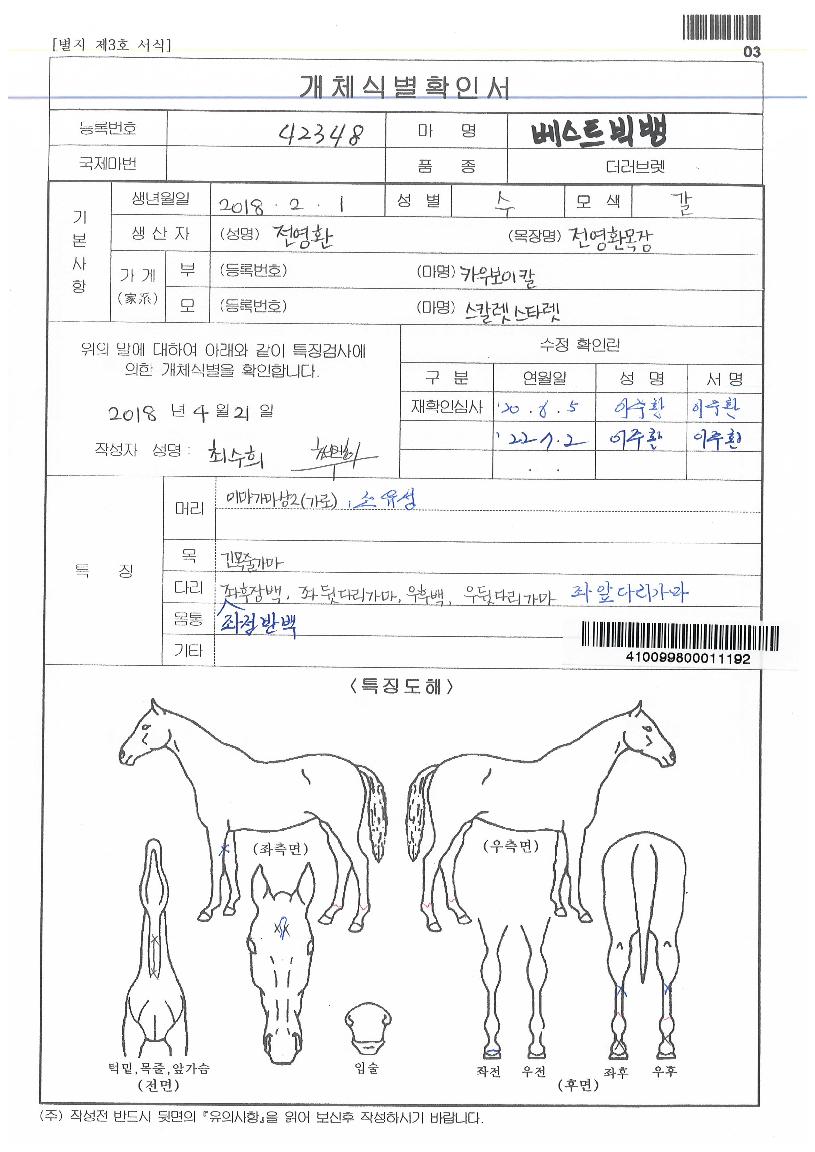 [별지 제3호 서식]
03
개체식별확인서
등록번호 42348 마 명 베스트빅뱅
국제마번 품 종 더러브렛
기본사항
생년월일 2018 . 2 . 1 성 별 수 모 색 갈
생 산 자 (성명) 전영환 (목장명) 전영환목장
가 계 (家系)
부 (등록번호) (마명) 카우보이칼
모 (등록번호) (마명) 스칼렛스타렛
위의 말에 대하여 아래와 같이 특징검사에
의한 개체식별을 확인합니다.
2018 년 4 월 21 일
작성자 성명 : 최수희
수정 확인란
구 분 연월일 성 명 서 명
재확인심사 '20 . 6 . 5 이주환 이주환
'22 . 7 . 2 이주환 이주환
. .
특 징
머리 이마가마상2(가로), 소유성
목 긴목줄가마
다리 좌후장백, 좌뒷다리가마, 우후백, 우뒷다리가마 좌앞다리가마
몸통 좌전반백
기타
410099800011192
<특징도해>
(좌측면) (우측면)
턱밑,목줄,앞가슴
(전면)
입술
좌전 우전 좌후 우후
(후면)
(주) 작성전 반드시 뒷면의 『유의사항』을 읽어 보신후 작성하시기 바랍니다.